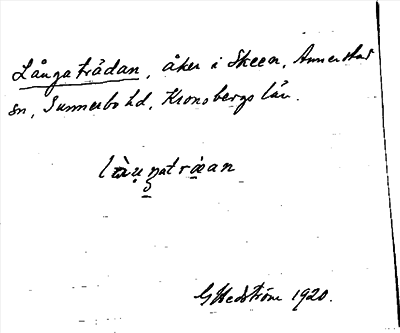 Långatrådan, åker i Skeen, Annerstad
sn, Sunnerbo hd, Kronobergs län.
G Hedström 1920.